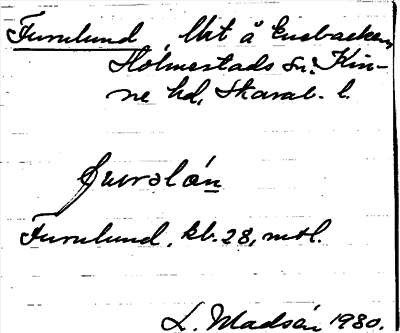 Furulund, lht å Enebacken,
Holmestads sn, Kin-
ne hd, Skarab. l.
Furulund, kb. 28, mtl.
L. Madsén 1930.